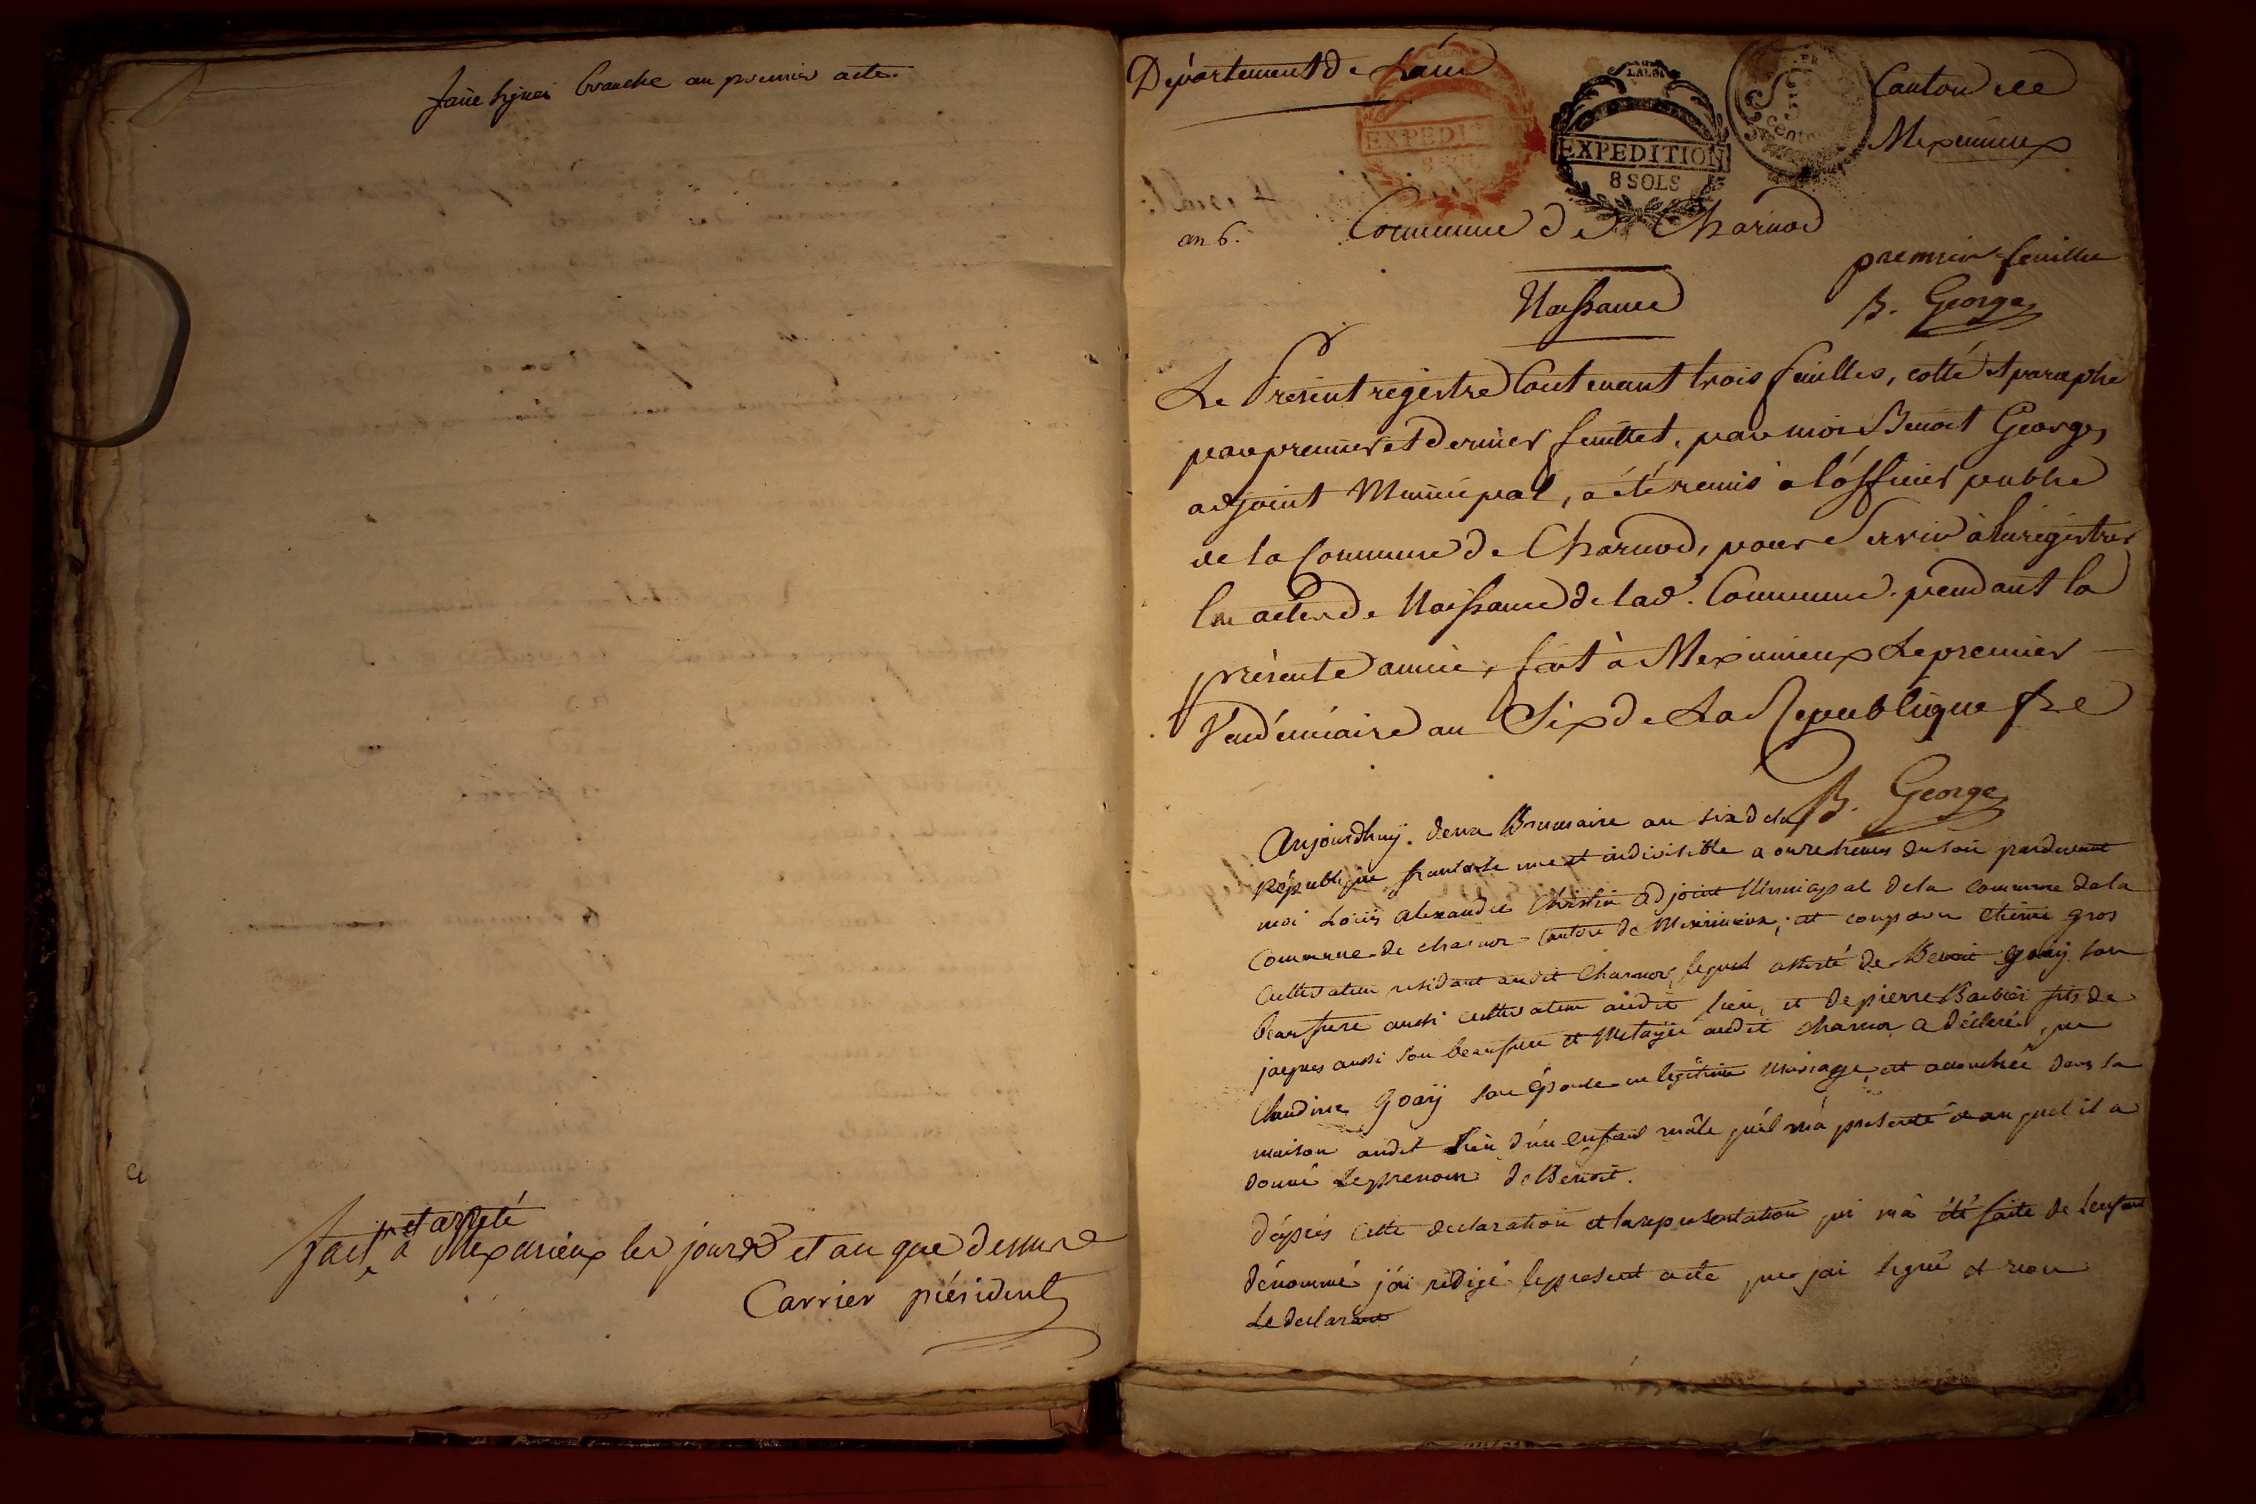 faire signer branche au premier acte.
fait et arreté à Meximieux les jours et an que dessus
Carrier président
Département de L'ain
EXPEDITION
8 SOLS
Canton de
Meximieux
an 6.
Commune de Charnod
premier feuillet
B. George
Naissance
Le Présent régistre Contenant trois feuilles, cotté et paraphé
par premier et dernier feuillet, par moi Benoit George,
adjoint Municipal, a été remis à l'officier public
de la Commune de Charnod, pour Servir à Enrégistrer
les actes de Naissance de lad. Commune pendant la
présente année, fait à Meximieux Le premier
Vendémiaire an Six de La Republique fse
B. George
Aujourdhuy deux Brumaire an six de la
République francaise une et indivisible a onze heures du soir pardevant
moi Loüis Alexandre Christin adjoint Municipal dela commune dela
Commune de charnoz Canton de Meximieux, est comparu etienne gros
Cultivateur residant audit Charnoz, lequel assisté de Benoit goüy son
beaufrere aussi cultivateur audit lieu, et de pierre Barbier fils de
jacques aussi son beaufrere et Metayer audit charnoz a déclaré que
Claudine goüy son épouse en légitime Mariage, est accouchée dans sa
maison audit Lieu d'un enfant mâle qu'il m'a présenté et auquel il a
donné Le prenom de Benoit.
d'après cette declaration et la representation qui m'a été faite de l'enfant
dénommé j'ai rédigé le présent acte que j'ai signé et non
Le declarant